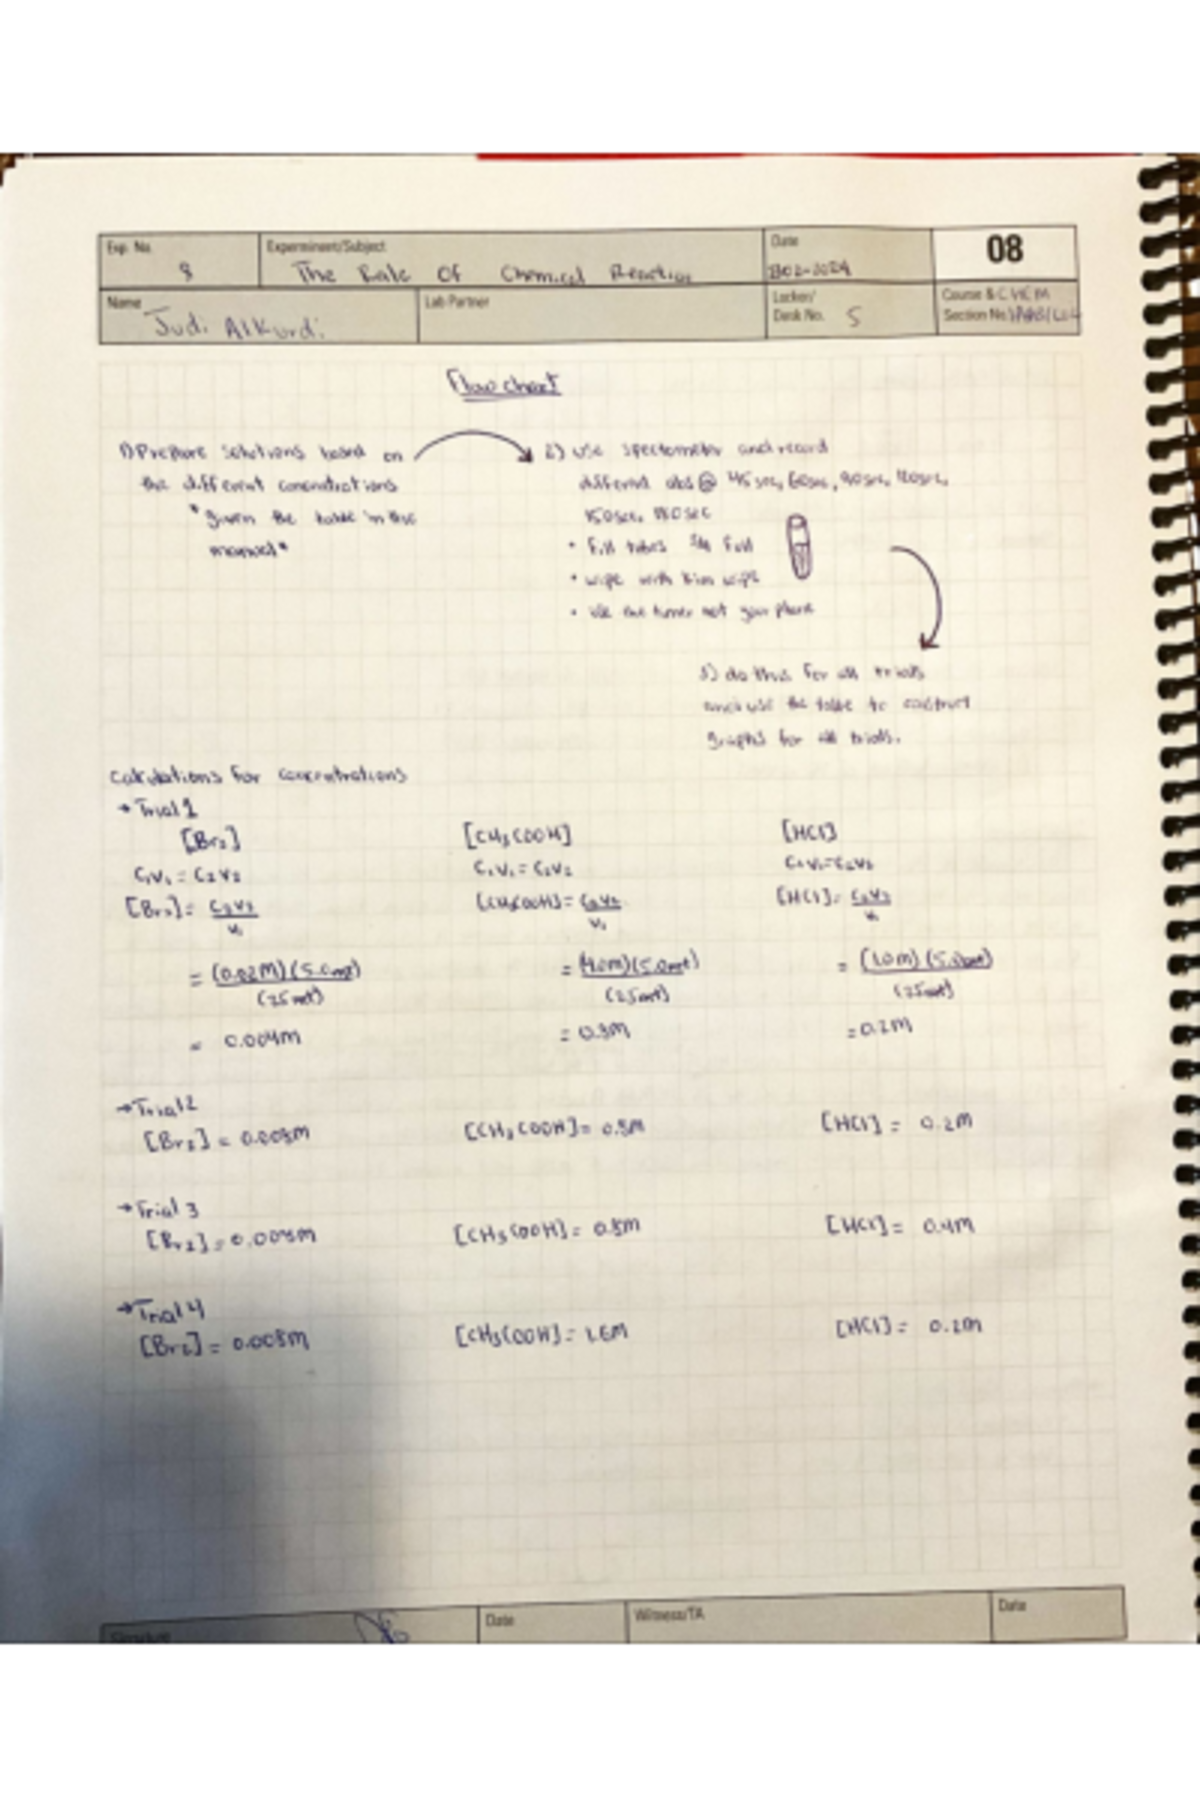 Exp. No.
8
Experiment/Subject
The Rate Of Chemical Reaction
Date
08
Name
Judi AlKurdi
Lab Partner
Locker/
Desk No. 5
Course & CHEM
Section No.
Flow chart
1) Prepare solutions based on
the different concentrations
*given the table in the
manual*
2) use spectometer and record
different abs @ 45 sec, 60sec, 90sec, 120sec,
150sec, 180sec
• fill tubes 3/4 full
• wipe with kim wipe
• Use the timer not your phone
3) do this for all trials
and use the table to construct
graphs for all trials.
Calculations for concentrations
→ Trial 1
[Br₂] [CH₃COOH] [HCl]
C₁V₁ = C₂V₂ C₁V₁ = C₂V₂ C₁V₁ = C₂V₂
[Br₂] = C₂V₂ [CH₃COOH] = C₂V₂ [HCl] = C₂V₂
V₁ V₁ V₁
= (0.02M)(5.0mL) = (4.0M)(5.0mL) = (1.0M)(5.0mL)
(25mL) (25mL) (25mL)
= 0.004M = 0.8M = 0.2M
→ Trial 2
[Br₂] = 0.008M [CH₃COOH] = 0.8M [HCl] = 0.2M
→ Trial 3
[Br₂] = [CH₃COOH] = 0.8M [HCl] = 0.4M
→ Trial 4
[Br₂] = [CH₃COOH] = 1.6M [HCl] = 0.2M
Signature
Date
Witness/TA
Date